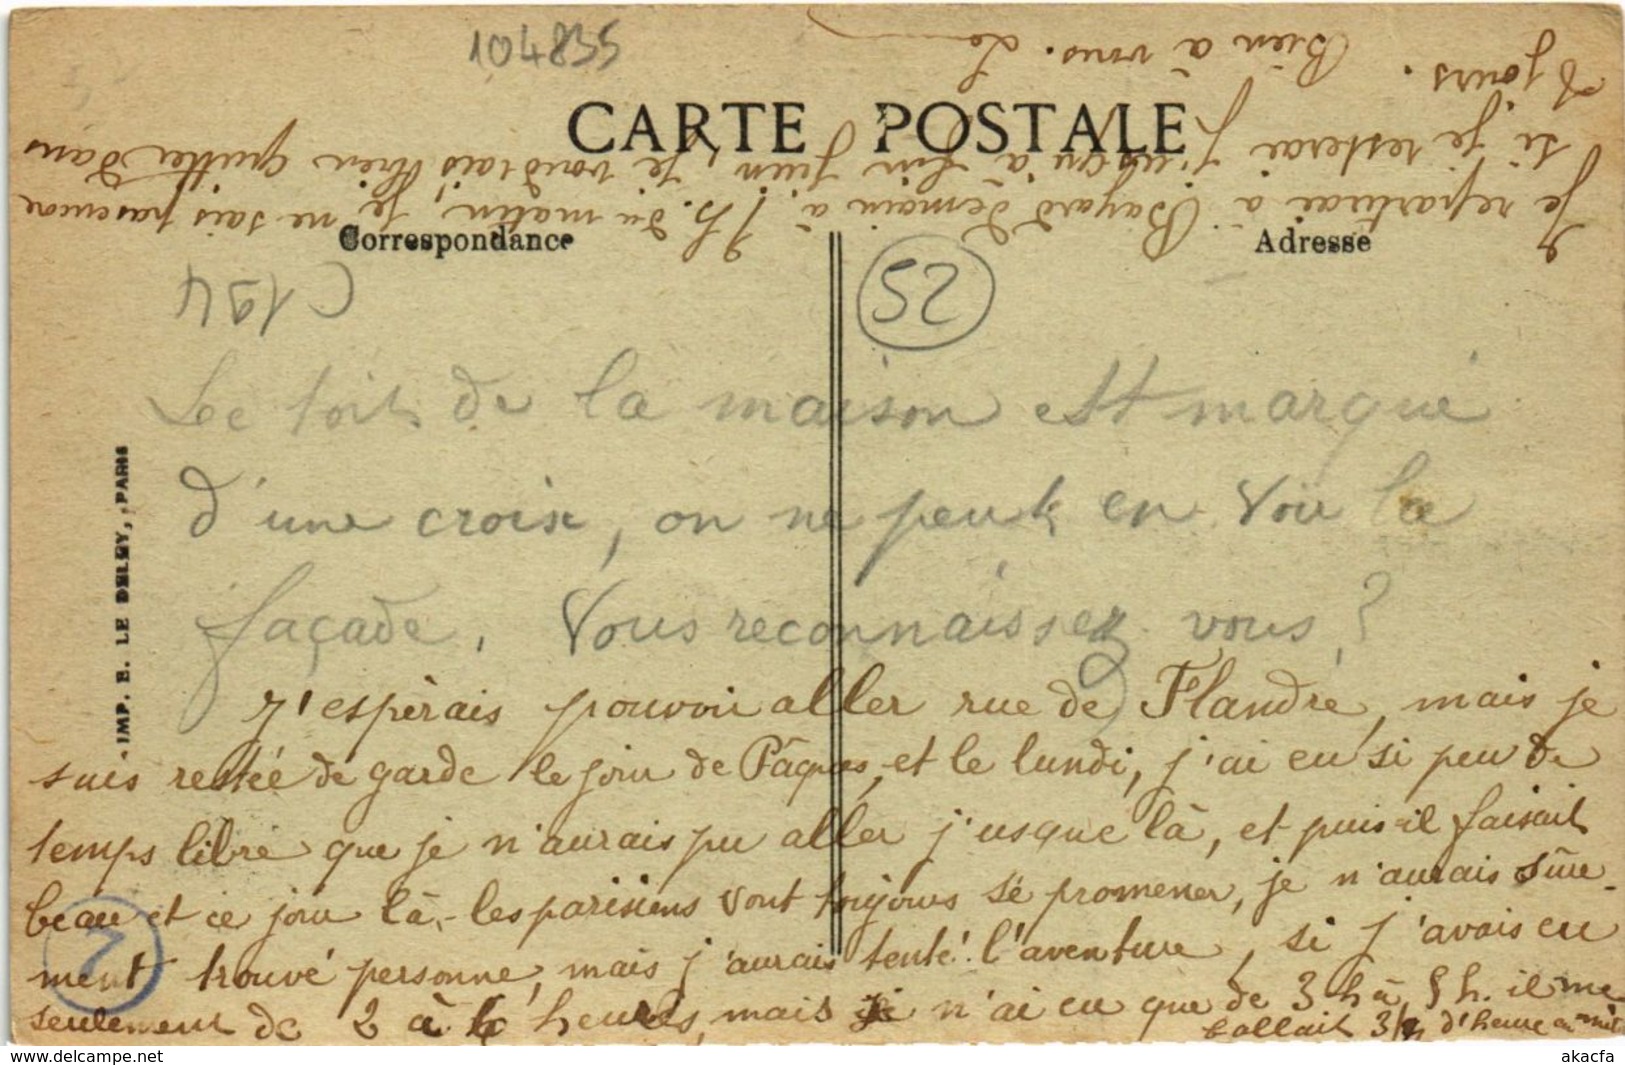 104835
CARTE POSTALE
Correspondance
Adresse
C194
52
Le toit de la maison est marqué
d'une croix, on ne peut en voir la
façade. Vous reconnaissez vous?
J'espèrais pouvoir aller rue de Flandre, mais je
suis restée de garde le jour de Pâques, et le lundi, j'ai eu si peu de
temps libre que je n'aurais pu aller jusque là, et puis il faisait
beau et ce jour là, les parisiens vont toujours se promener, je n'aurais sûre-
ment trouvé personne, mais j'aurais tenté l'aventure, si j'avais eu
seulement de 2 à 6 heures, mais je n'ai eu que de 3 h à 5 h. il me
fallait 3/4 d'heure au moins
Je repartirai à Bayard demain à 7 h. du matin, je ne sais pas encore
si je resterai jusqu'à fin juin, je voudrais bien quitter dans
8 jours. Bien à vous.
IMP. E. LE DELEY, PARIS
7
akacfa